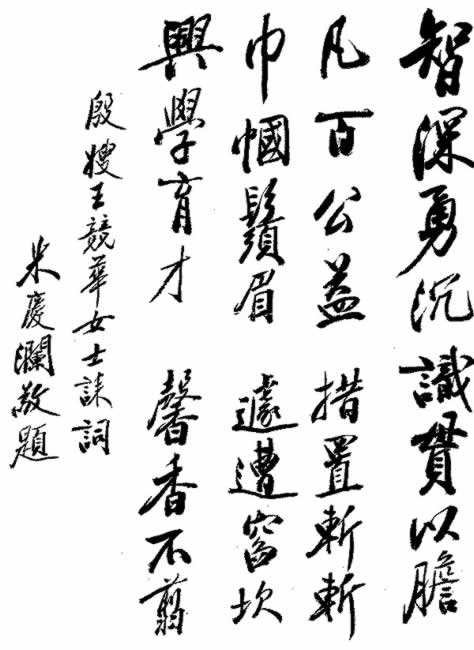 智深勇沉 識貫以膽
凡百公益 措置斬斬
巾幗鬚眉 遽遭窞坎
興學育才 馨香不翦
殷嫂王競華女士誄詞
米慶瀾敬題